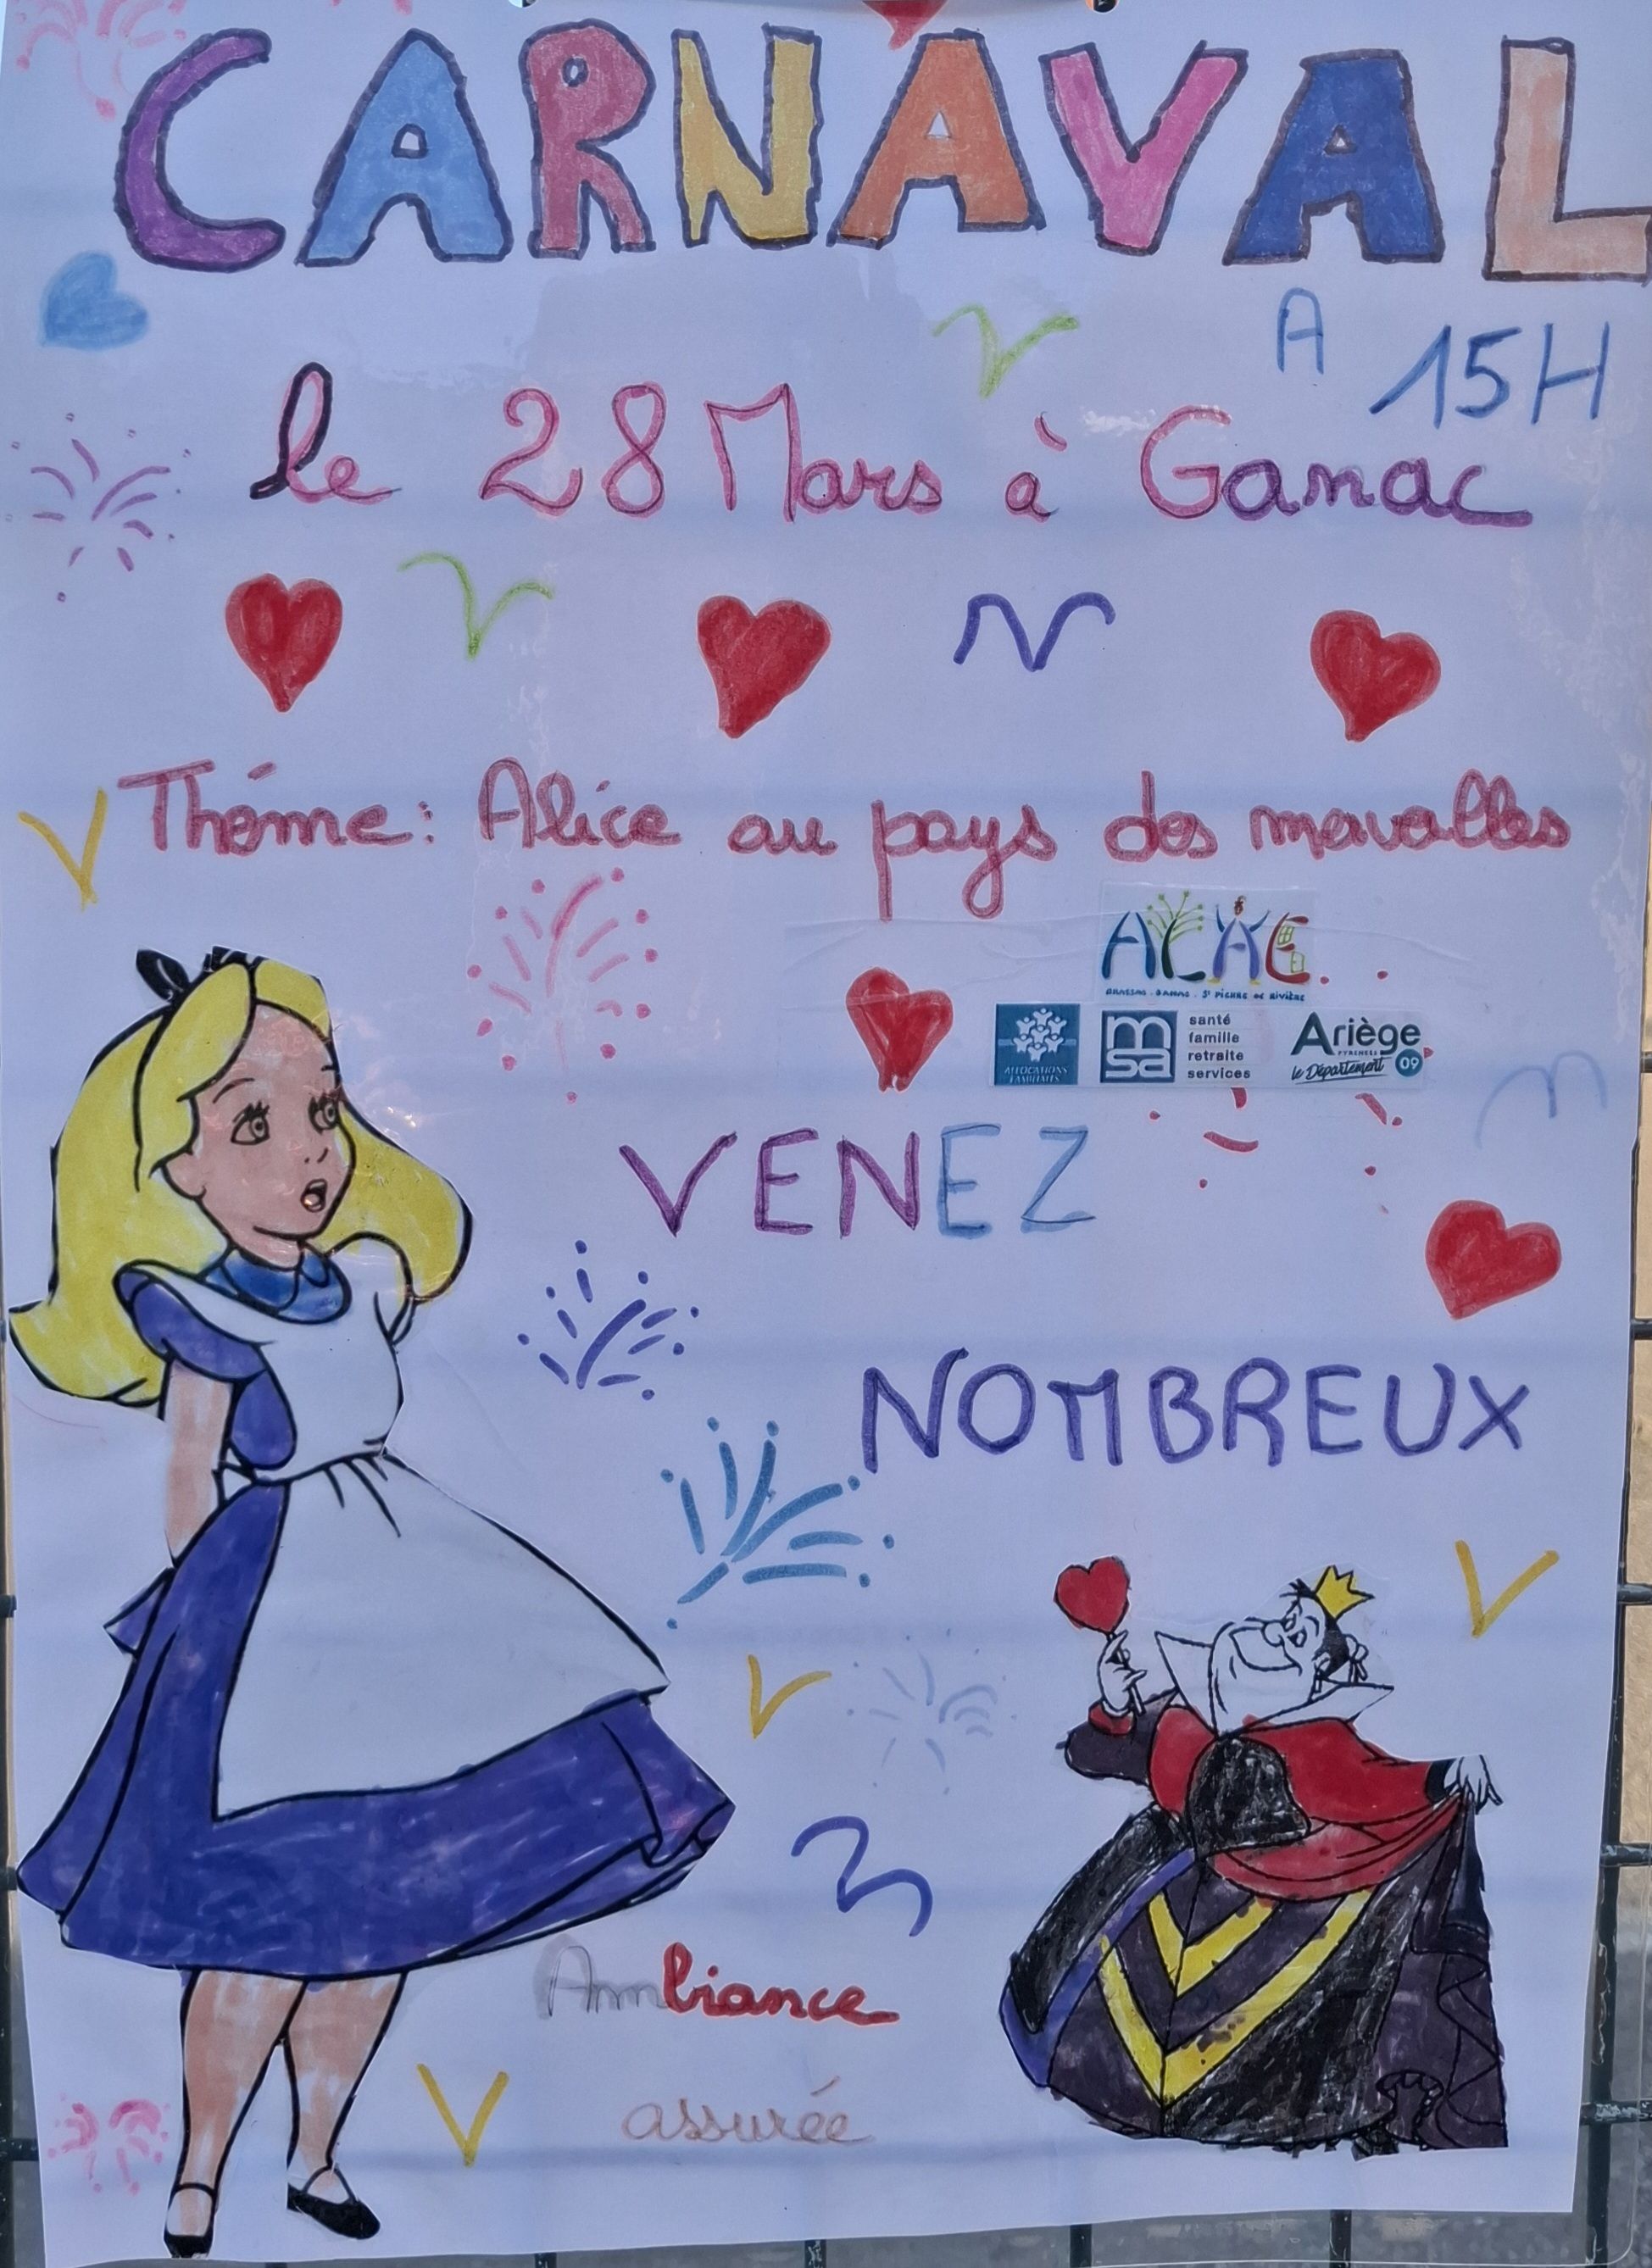 CARNAVAL
A 15H
le 28 Mars à Ganac
Théme: Alice au pays des mervalles
ALAE
BRASSAC . GANAC . ST PIERRE DE RIVIÈRE
ALLOCATIONS FAMILIALES
msa
santé
famille
retraite
services
Ariège
PYRENEES
le Département 09
VENEZ
NOMBREUX
Ambiance
assurée